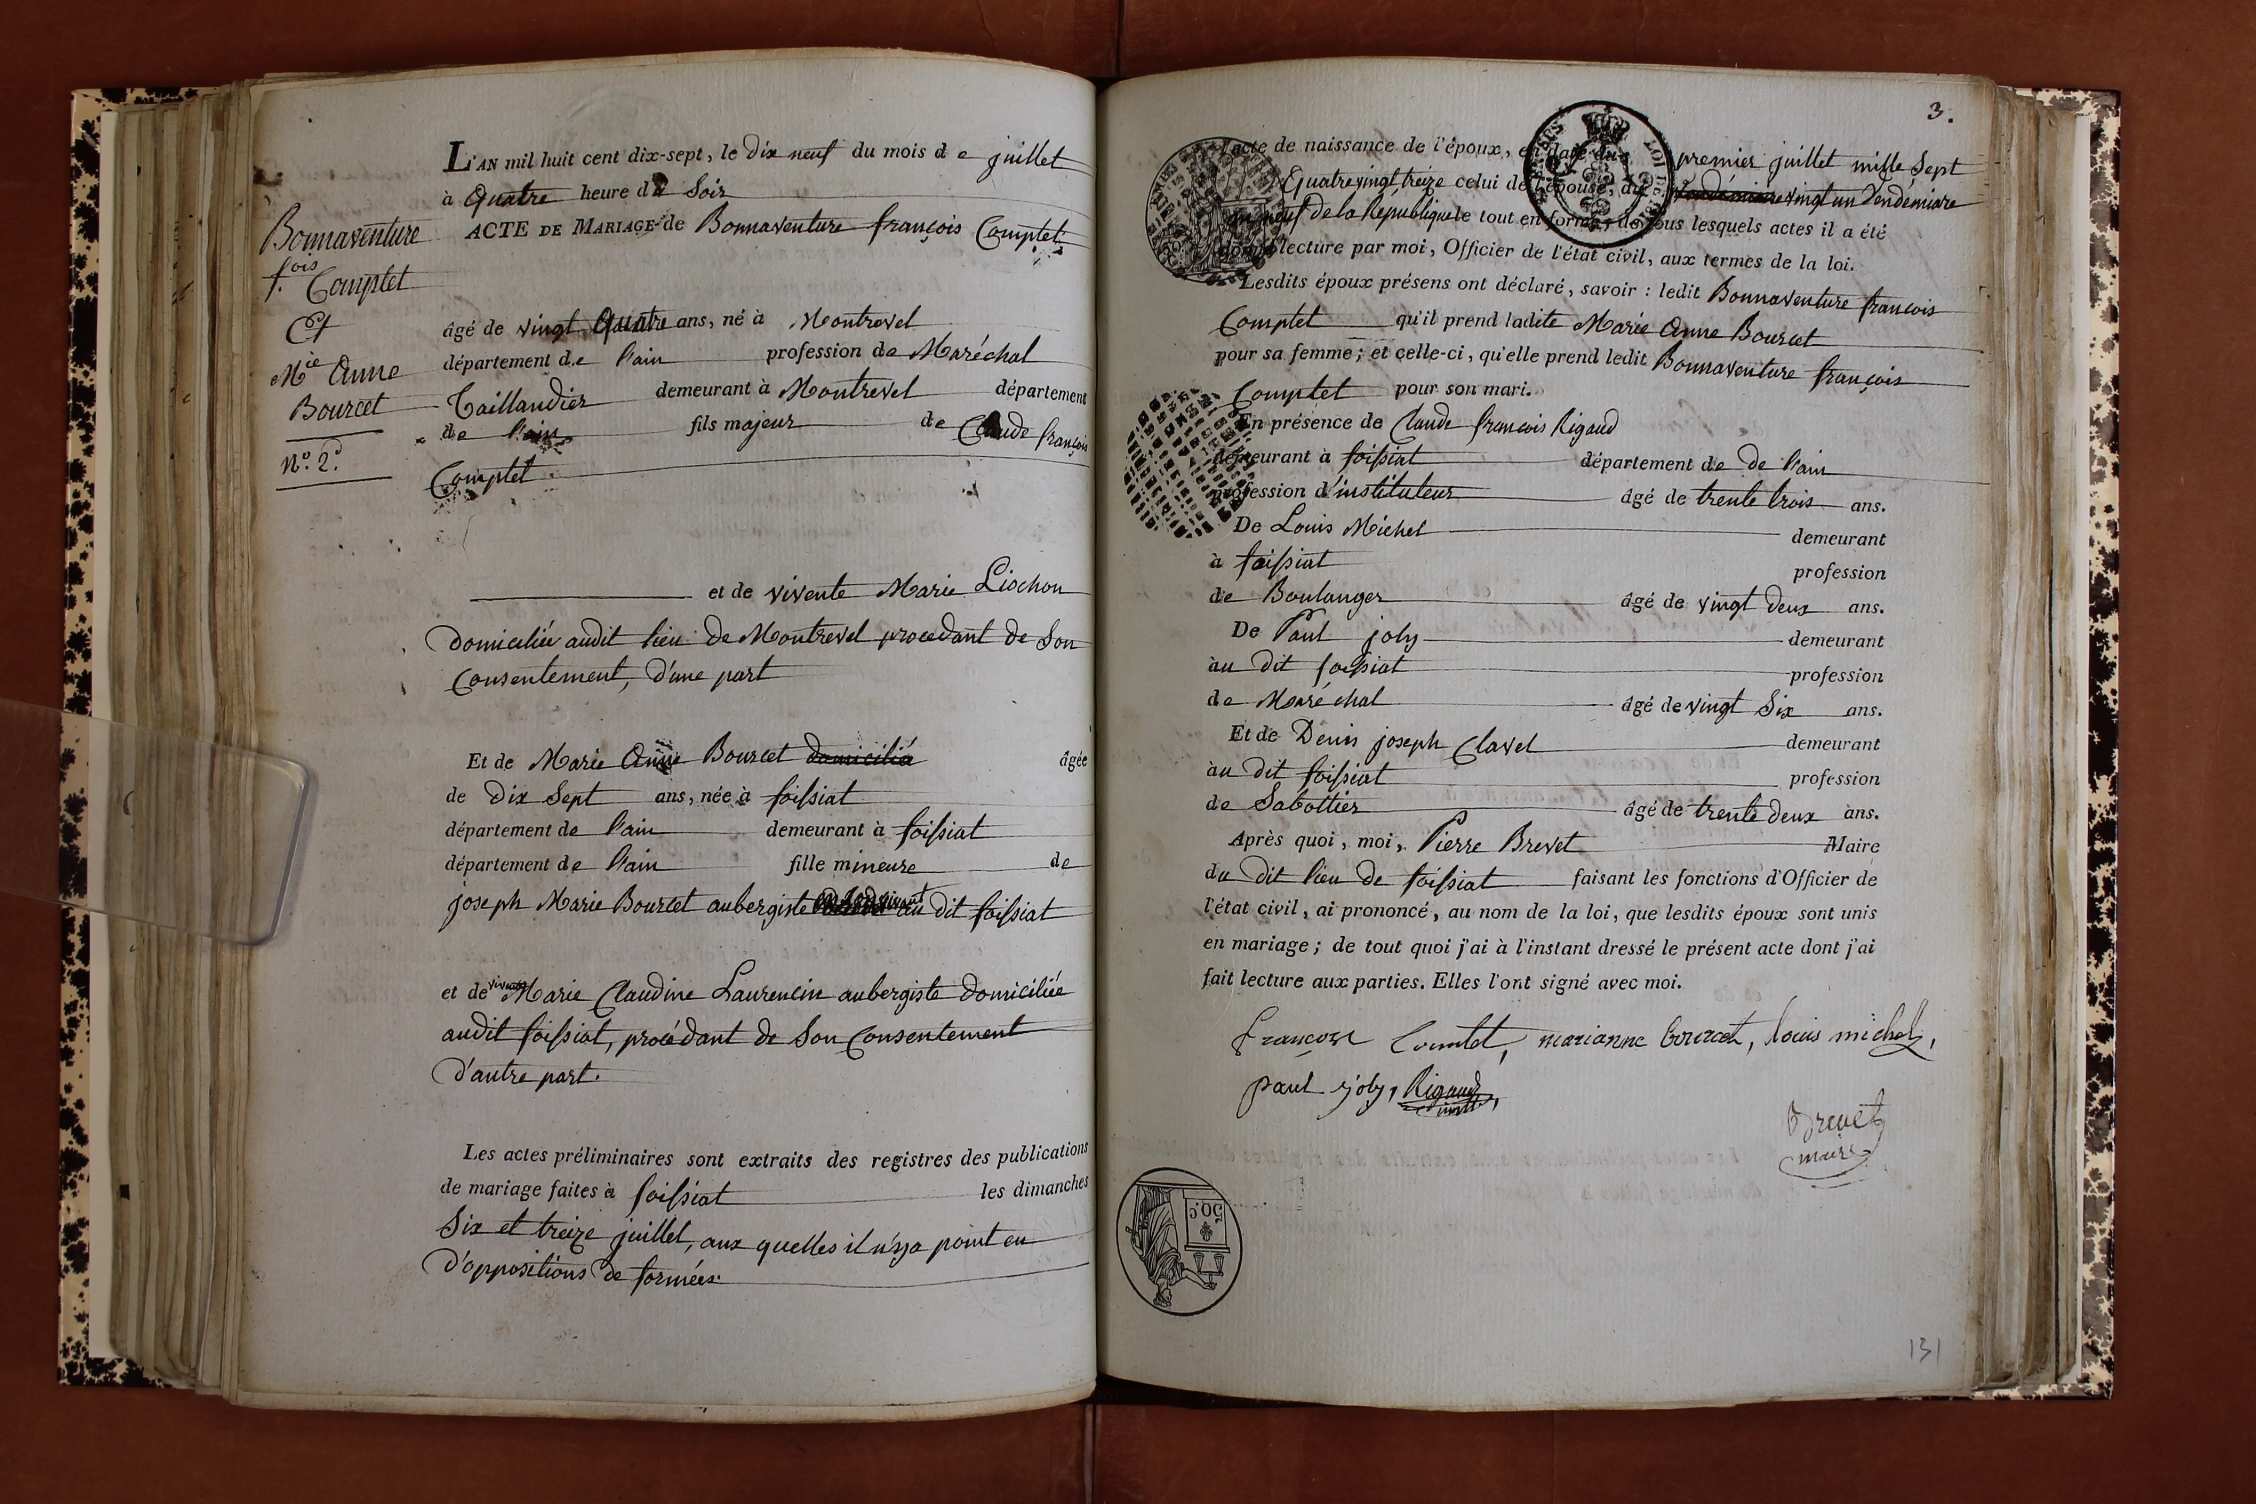 L'AN mil huit cent dix-sept, le dix neuf du mois de juillet
à Quatre heure du Soir
ACTE DE MARIAGE de Bonnaventure françois Comptet
Bonnaventure
f.ois Comptet
Et
M.ie Anne
Bourcet
N.o 2.d
âgé de vingt Quatre ans, né à Montrevel
département de l'ain profession de Maréchal
Taillandier demeurant à Montrevel département
de l'ain fils majeur de Claude françois
Comptet
et de vivente Marie Liochon
domiciliée audit lieu de Montrevel procedant de Son
Consentement, d'une part
Et de Marie Anne Bourcet domicilié âgée
de dix Sept ans, née à foissiat
département de l'ain demeurant à foissiat
département de l'ain fille mineure de
joseph Marie Bourcet aubergiste au dit foissiat
et de vivente Marie Claudine Laurencin aubergiste domiciliée
audit foissiat, procédant de Son Consentement
d'autre part.
Les actes préliminaires sont extraits des registres des publications
de mariage faites à foissiat les dimanches
Six et treize juillet, aux quelles il n'ya point eu
d'oppositions de formées.
3.
l'acte de naissance de l'époux, en date du premier juillet mille Sept
Quatrevingt treize celui de l'épouse, du vingt un Vendémiaire
an neuf de la Republique le tout en forme; de tous lesquels actes il a été
donné lecture par moi, Officier de l'état civil, aux termes de la loi.
Lesdits époux présens ont déclaré, savoir : ledit Bonnaventure francois
Comptet qu'il prend ladite Marie Anne Bourcet
pour sa femme; et celle-ci, qu'elle prend ledit Bonnaventure françois
Comptet pour son mari.
En présence de Claude francois Rigaud
demeurant à foissiat département de de l'ain
profession d'instituteur âgé de trente trois ans.
De Louis Michel demeurant
à foissiat profession
de Boulanger âgé de vingt deux ans.
De Paul joly demeurant
au dit foissiat profession
de Maréchal âgé de vingt Six ans.
Et de Denis joseph Clavel demeurant
au dit foissiat profession
de Sabottier âgé de trente deux ans.
Après quoi, moi, Pierre Brevet Maire
du dit lieu de foissiat faisant les fonctions d'Officier de
l'état civil, ai prononcé, au nom de la loi, que lesdits époux sont unis
en mariage; de tout quoi j'ai à l'instant dressé le présent acte dont j'ai
fait lecture aux parties. Elles l'ont signé avec moi.
françois Comtet, marianne bourcet, louis michel,
paul joly, Rigaud
Brevet
maire
50 c.
131